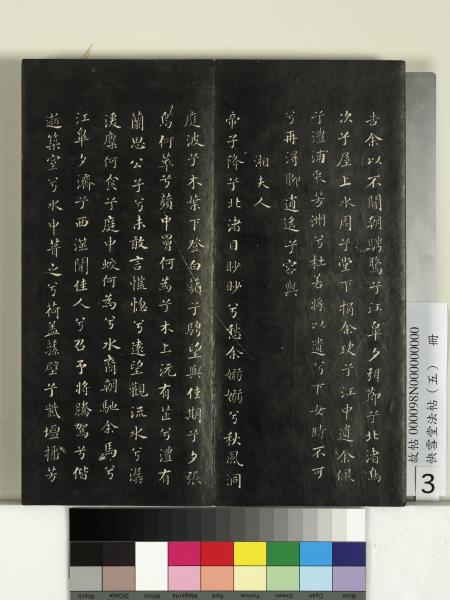 告余以不閒朝騁騖兮江皐夕弭節兮北渚鳥
次兮屋上水周兮堂下捐余玦兮江中遺余佩
兮澧浦采芳洲兮杜若將以遺兮下女時不可
兮再得聊逍遙兮容與
湘夫人
帝子降兮北渚目眇眇兮愁余嫋嫋兮秋風洞
庭波兮木葉下登白薠兮騁望與佳期兮夕張
鳥何萃兮蘋中罾何為兮木上沅有芷兮澧有
蘭思公子兮未敢言慌惚兮遠望觀流水兮潺
湲麋何食兮庭中蛟何為兮水裔朝馳余馬兮
江皐夕濟兮西澨聞佳人兮召予將騰駕兮偕
逝築室兮水中葺之兮荷蓋蓀壁兮紫壇播芳
故帖 000098N000000000
快雪堂法帖（五） 冊
3
Blue Cyan Green Yellow Red Magenta White 3/Color Black